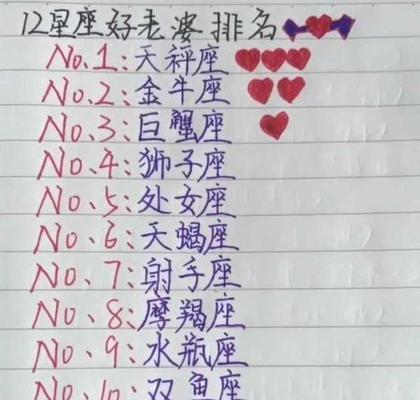 12星座好老婆排名
No.1:天秤座
No.2:金牛座
No.3:巨蟹座
No.4:狮子座
No、5:处女座
No、6:天蝎座
No、7:射手座
No、8:摩羯座
No、9:水瓶座
No、10:双鱼座